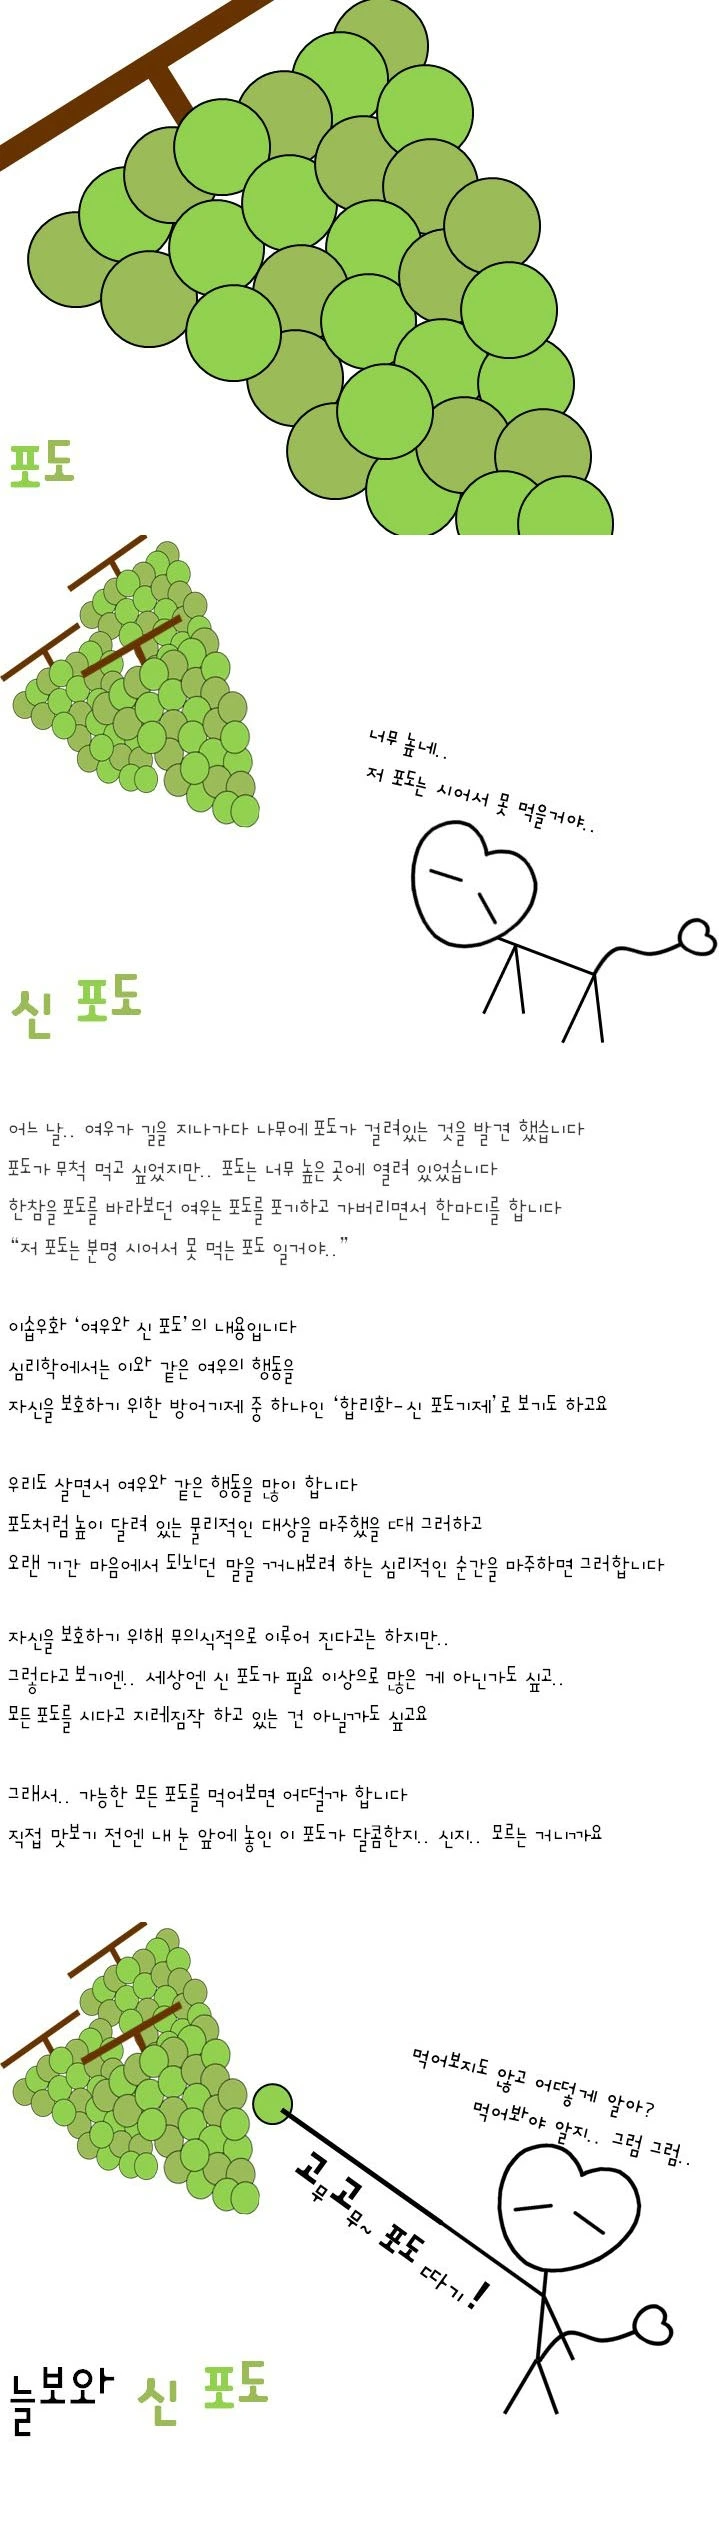 포도
너무 높네..
저 포도는 시어서 못 먹을거야..
신 포도
어느 날.. 여우가 길을 지나가다 나무에 포도가 걸려있는 것을 발견 했습니다
포도가 무척 먹고 싶었지만.. 포도는 너무 높은 곳에 열려 있었습니다
한참을 포도를 바라보던 여우는 포도를 포기하고 가버리면서 한마디를 합니다
“저 포도는 분명 시어서 못 먹는 포도 일거야..”
이솝우화 ‘여우와 신 포도’의 내용입니다
심리학에서는 이와 같은 여우의 행동을
자신을 보호하기 위한 방어기제 중 하나인 ‘합리화-신 포도기제’로 보기도 하고요
우리도 살면서 여우와 같은 행동을 많이 합니다
포도처럼 높이 달려 있는 물리적인 대상을 마주했을 때 그러하고
오랜 기간 마음에서 되뇌던 말을 꺼내보려 하는 심리적인 순간을 마주하면 그러합니다
자신을 보호하기 위해 무의식적으로 이루어 진다고는 하지만..
그렇다고 보기엔.. 세상엔 신 포도가 필요 이상으로 많은 게 아닌가도 싶고..
모든 포도를 시다고 지레짐작 하고 있는 건 아닐까도 싶고요
그래서.. 가능한 모든 포도를 먹어보면 어떨까 합니다
직접 맛보기 전엔 내 눈 앞에 놓인 이 포도가 달콤한지.. 신지.. 모르는 거니까요
먹어보지도 않고 어떻게 알아?
먹어봐야 알지.. 그럼 그럼..
고무고무~ 포도 따기!
늘보와 신 포도